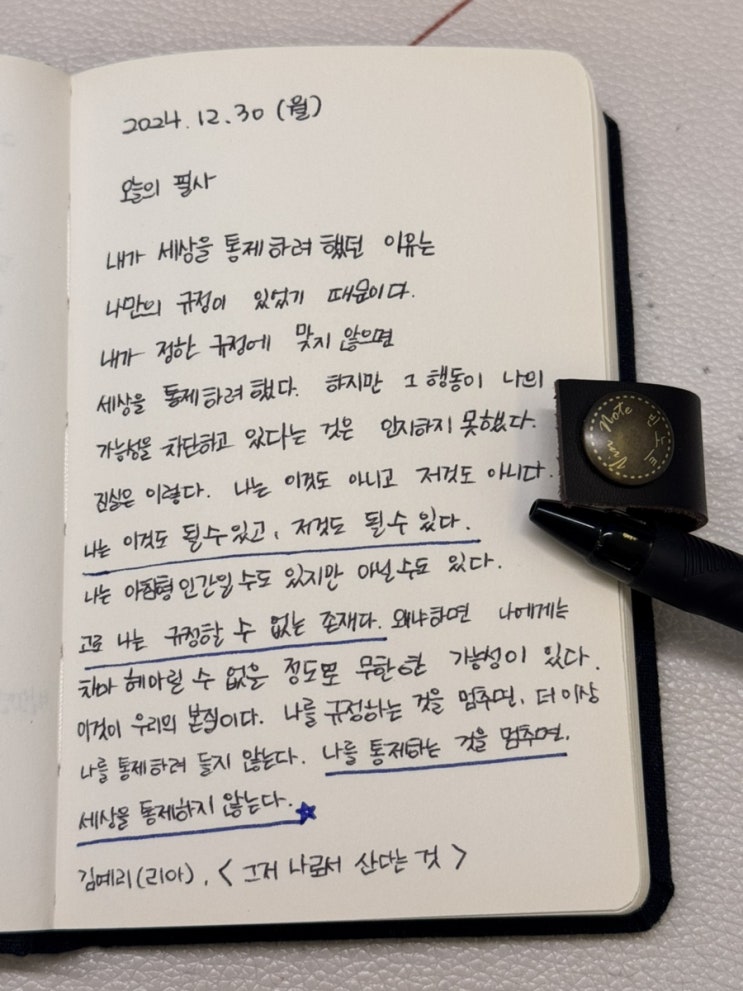 2024. 12. 30 (월)
오늘의 필사
내가 세상을 통제하려 했던 이유는
나만의 규정이 있었기 때문이다.
내가 정한 규정에 맞지 않으면
세상을 통제하려 했다. 하지만 그 행동이 나의
가능성을 차단하고 있다는 것은 인지하지 못했다.
진실은 이렇다. 나는 이것도 아니고 저것도 아니다.
나는 이것도 될 수 있고, 저것도 될 수 있다.
나는 아침형 인간일 수도 있지만 아닐 수도 있다.
고로 나는 규정할 수 없는 존재다. 왜냐하면 나에게는
차마 헤아릴 수 없을 정도로 무한한 가능성이 있다.
이것이 우리의 본질이다. 나를 규정하는 것을 멈추면, 더 이상
나를 통제하려 들지 않는다. 나를 통제하는 것을 멈추면,
세상을 통제하지 않는다.
김예리(리아), < 그저 나로서 산다는 것 >
Vin Note
빈노트